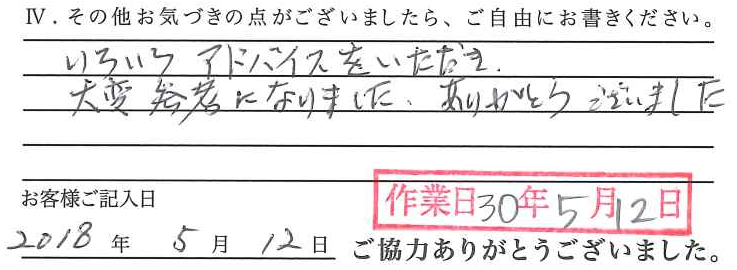 Ⅳ．その他お気づきの点がございましたら、ご自由にお書きください。
いろいろ アドバイスをいただき、
大変参考になりました、ありがとうございました
お客様ご記入日
作業日30年5月12日
2018年 5月 12日 ご協力ありがとうございました。